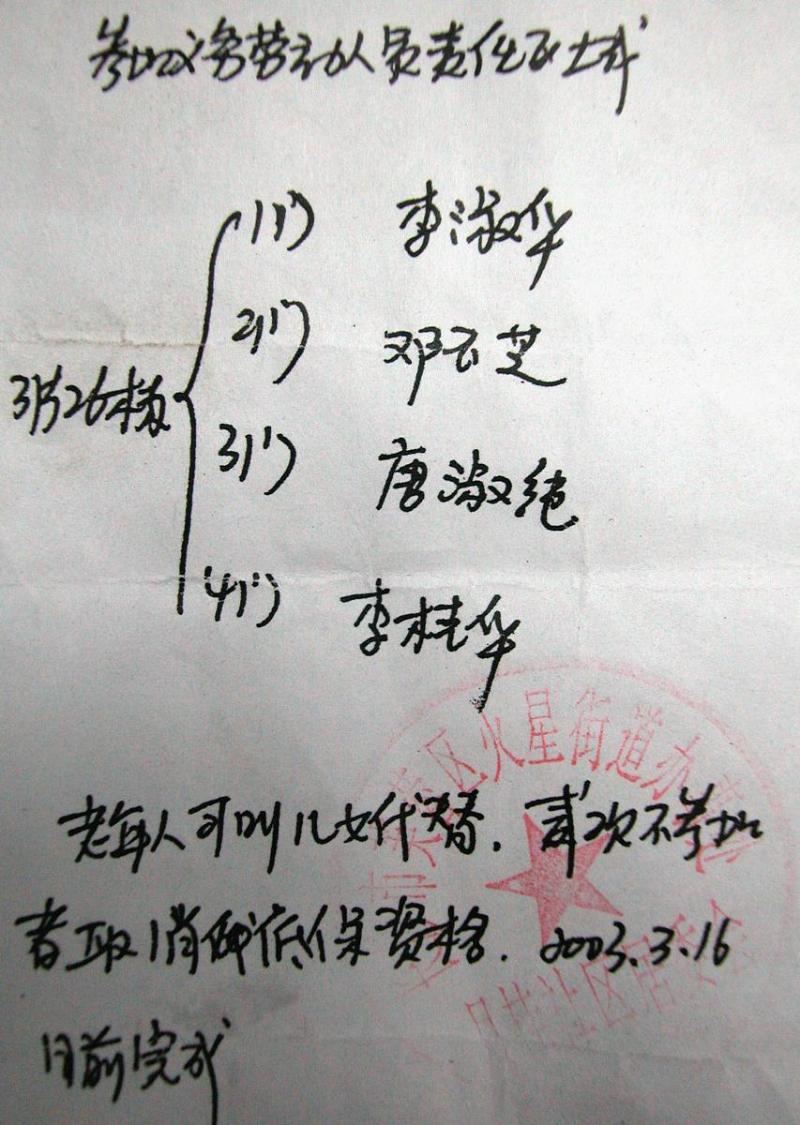 参加义务劳动人员责任区
1门 李淑华
2门 邓云芝
3片26栋
3门 唐淑纯
4门 李桂华
区火星街道办
老年人可叫儿女代替. 次不参加
者取消 低保资格. 2003.3.16
日前完成
社区居